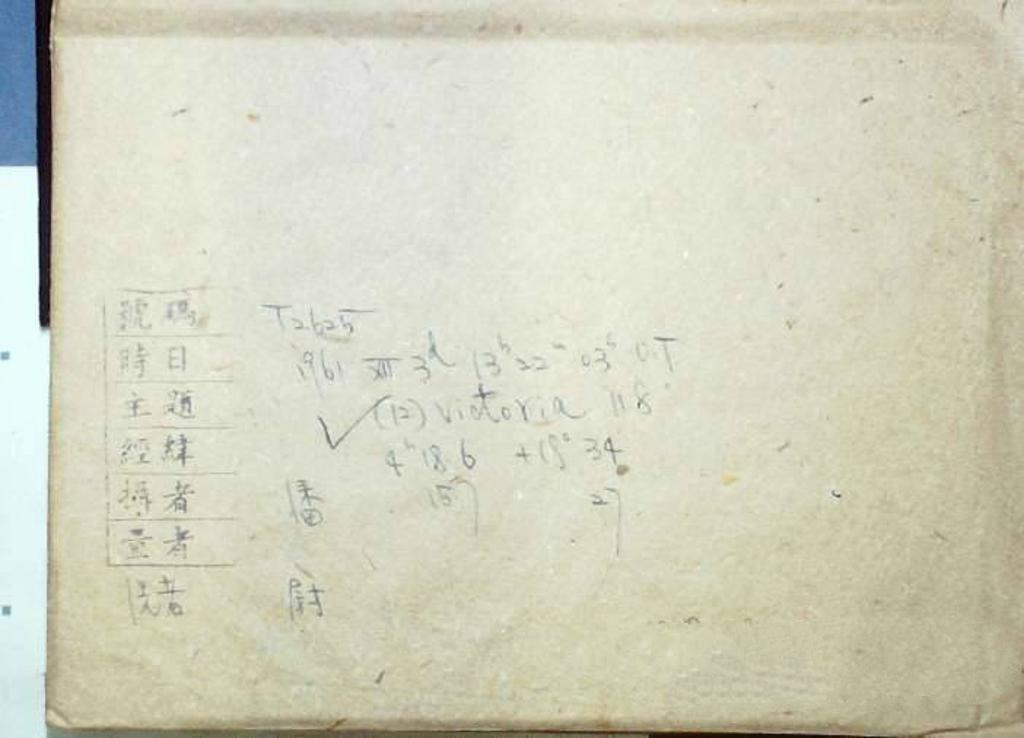 號碼 T2625
時日 1961 XII 3d 13h 22m 03s U.T
主題 ✓ (12) Victoria 11.8
經緯 4h 18.6 +18° 34
攝者 潘 157 27
量者
洗者 尉